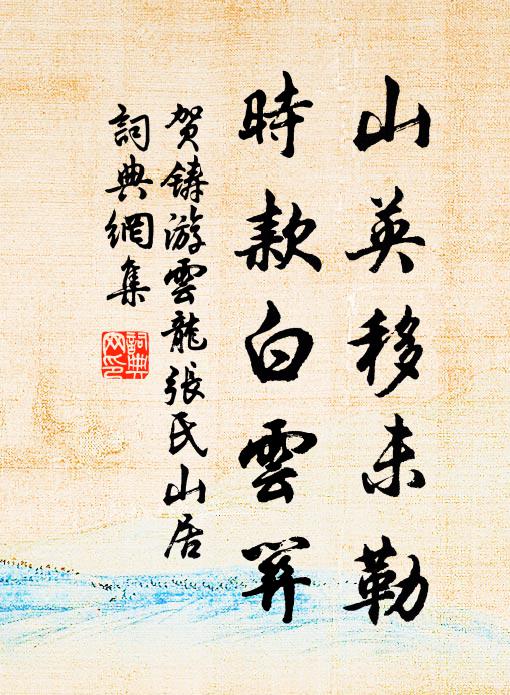 山英移未勒
時款白雲關
賀鑄游雲龍張氏山居
詞典網集
詞典
网印